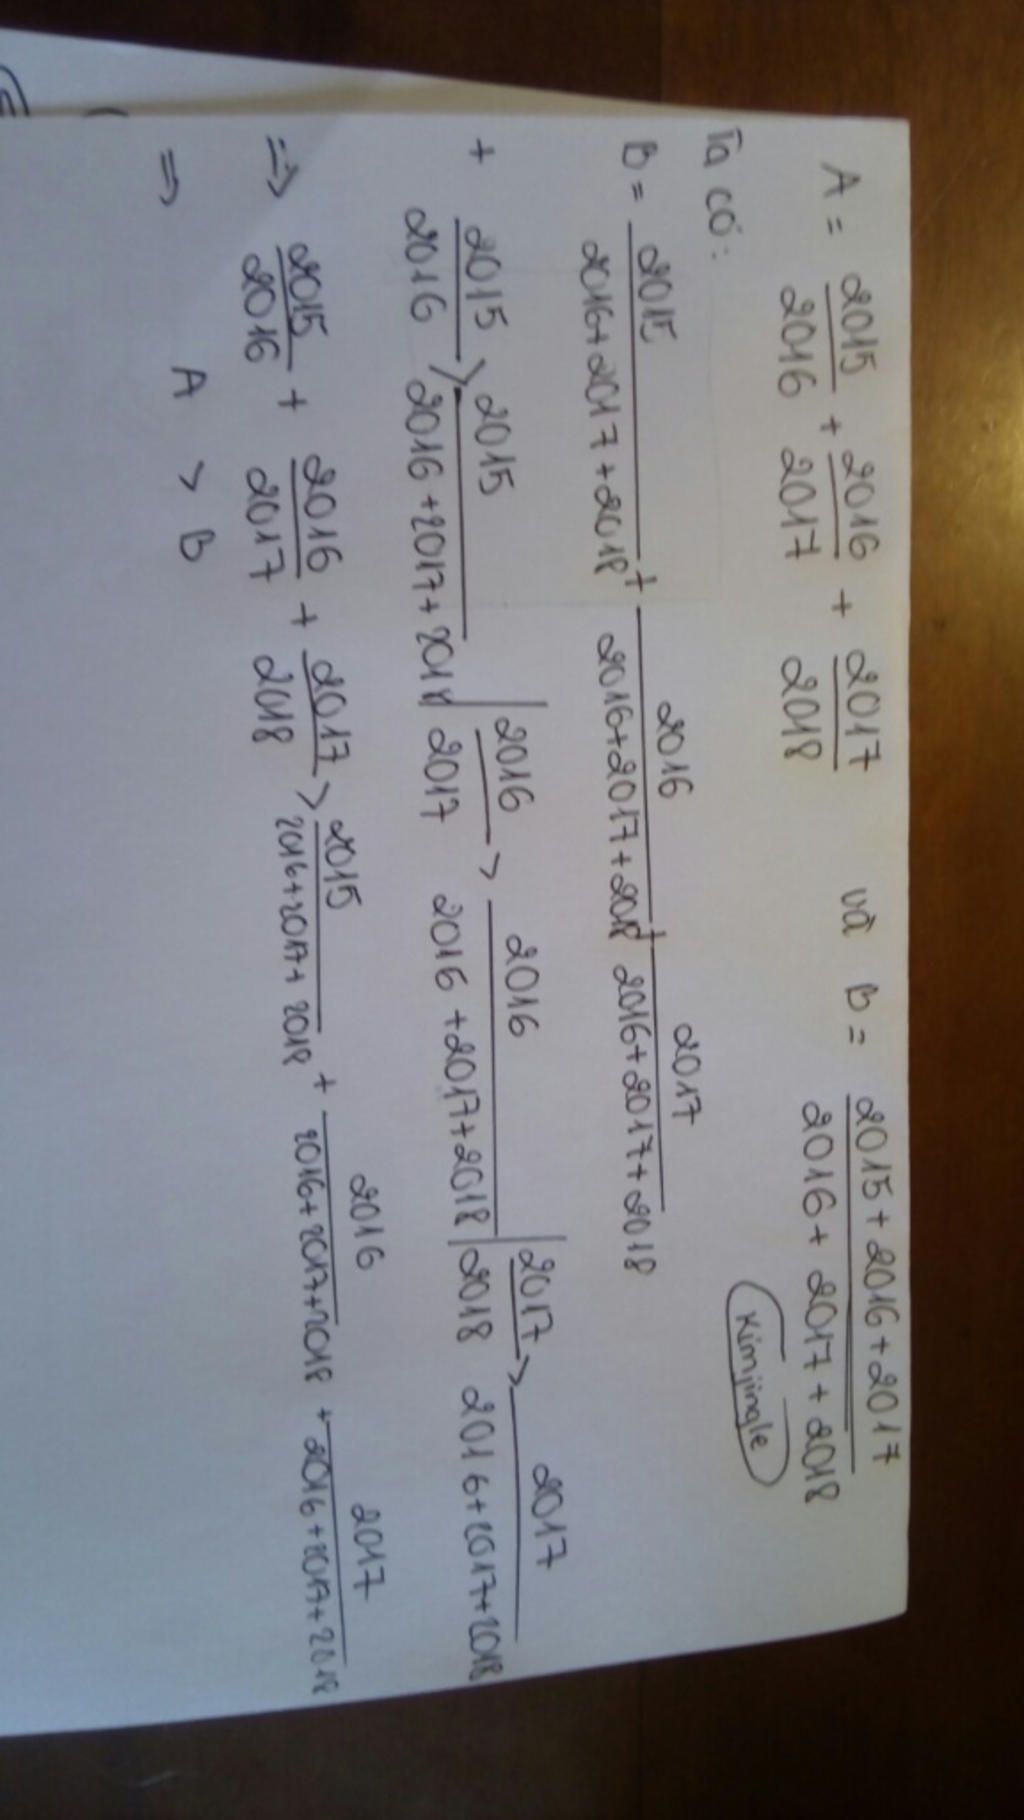 A = 2015/2016 + 2016/2017 + 2017/2018 và B = 2015+2016+2017/2016+2017+2018
Kimjingle
Ta có:
B = 2015/2016+2017+2018 + 2016/2016+2017+2018 + 2017/2016+2017+2018
+ 2015/2016 > 2015/2016+2017+2018 | 2016/2017 > 2016/2016+2017+2018 | 2017/2018 > 2017/2016+2017+2018
=> 2015/2016 + 2016/2017 + 2017/2018 > 2015/2016+2017+2018 + 2016/2016+2017+2018 + 2017/2016+2017+2018
=> A > B